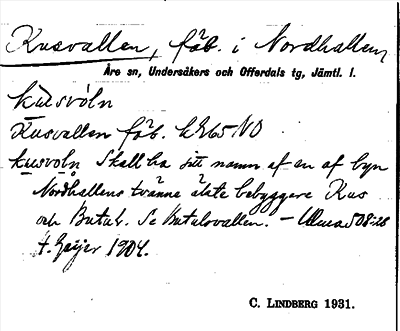 Kusvallen, fäb. i Nordhallen,
Åre sn, Undersåkers och Offerdals tg, Jämtl. l.
kusvoln
Kusvallen fäb. kk65 NO
kusvoln Skall ha sitt namn af en af byn
Nordhallens tvänne äldste bebyggare Kus
och Butul. Se Butulsvallen. – Ulma 508:28
H. Geijer 1904.
C. LINDBERG 1931.